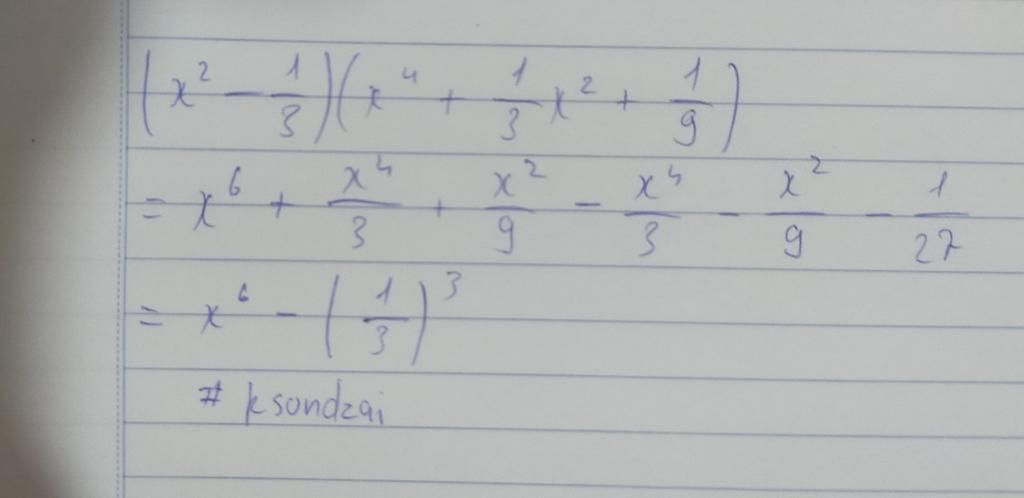 (x² - 1/3)(x⁴ + 1/3 x² + 1/9)
= x⁶ + x⁴/3 + x²/9 - x⁴/3 - x²/9 - 1/27
= x⁶ - (1/3)³
# ksondzai